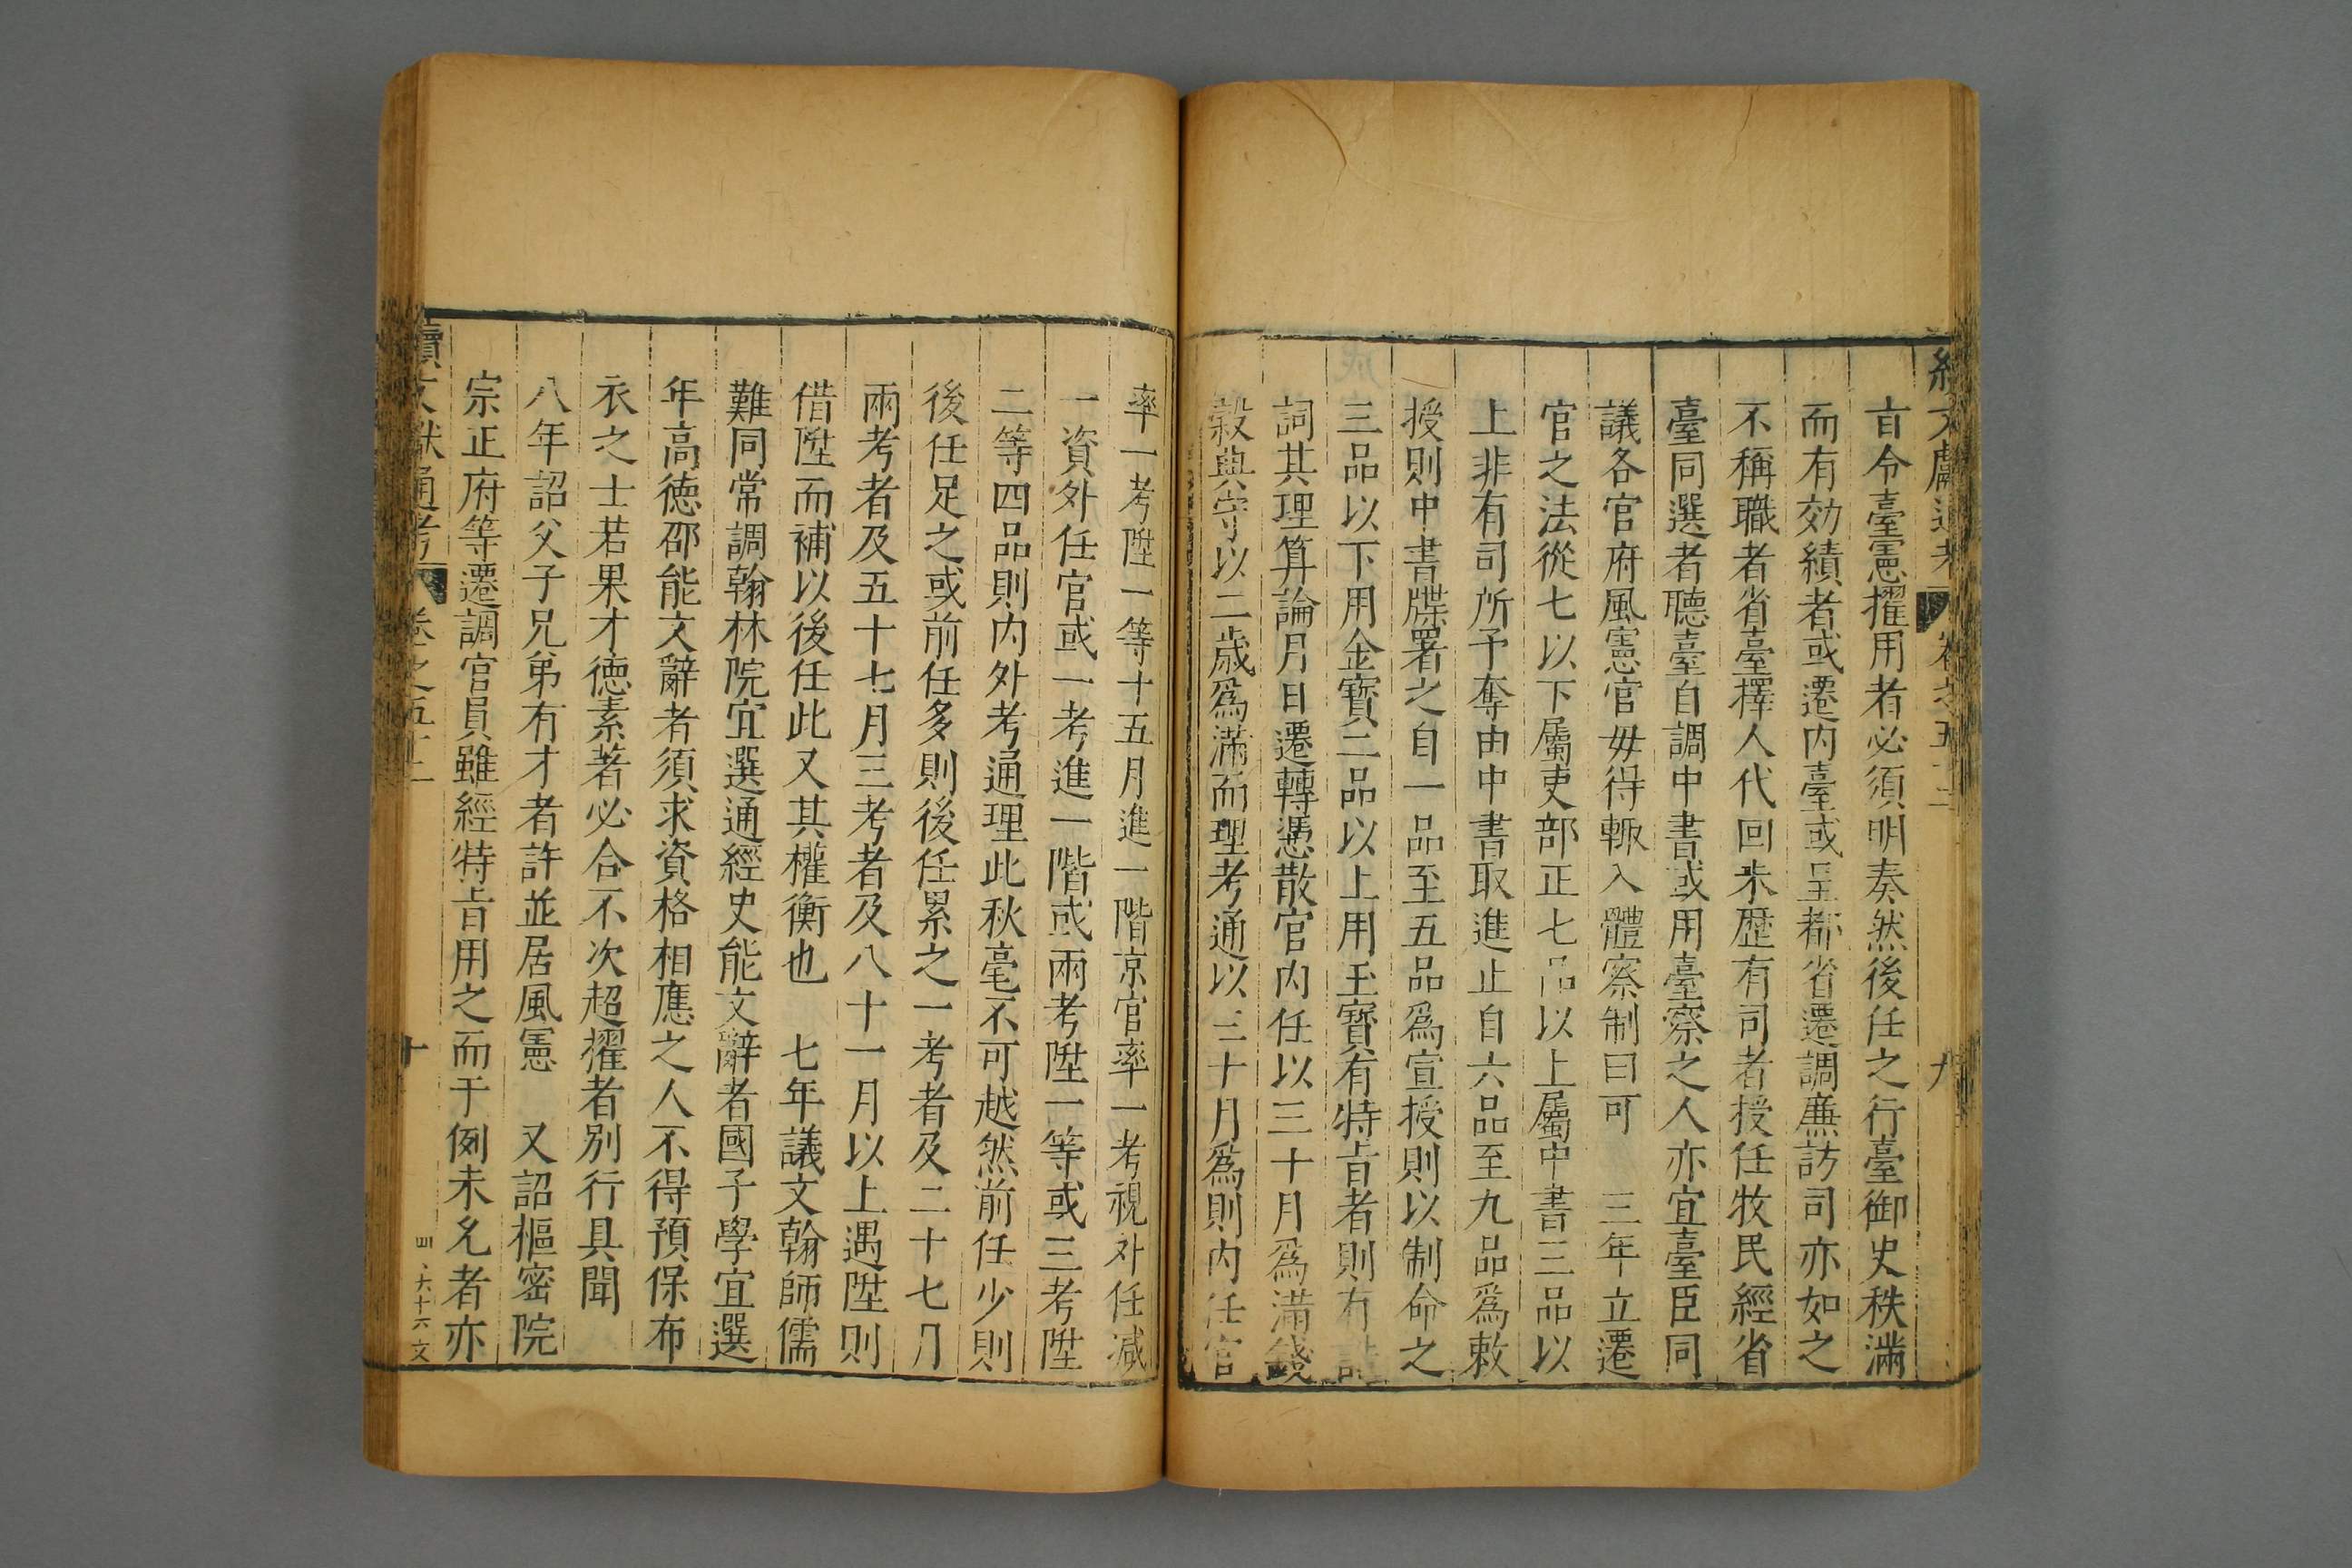 續文獻通考 卷之五十二 九
㫖令臺憲擢用者必須明奏然後任之行臺御史秩滿
而有効績者或遷内臺或呈都省遷調廉訪司亦如之
不稱職者省臺擇人代回来歷有司者授任牧民經省
臺同選者聽臺自調中書或用臺察之人亦宜臺臣同
議各官府風憲官毋得輒入體察制曰可 三年立遷
官之法從七以下屬吏部正七品以上屬中書三品以
上非有司所予奪由中書取進止自六品至九品爲敕
授則中書牒署之自一品至五品爲宣授則以制命之
三品以下用金寶二品以上用玉寶有特㫖者則有誥
詞其理算論月日遷轉憑散官内任以三十月爲滿錢
穀典守以二歲爲滿而理考通以三十月爲則内任官
率一考陞一等十五月進一階京官率一考視外任減
一資外任官或一考進一階或兩考陞一等或三考陞
二等四品則内外考通理此秋毫不可越然前任少則
後任足之或前任多則後任累之一考者及二十七月
兩考者及五十七月三考者及八十一月以上遇陞則
借陞而補以後任此又其權衡也 七年議文翰師儒
難同常調翰林院宜選通經史能文辭者國子學宜選
年高徳邵能文辭者須求資格相應之人不得預保布
衣之士若果才徳素著必合不次超擢者別行具聞
八年詔父子兄弟有才者許並居風憲 又詔樞密院
宗正府等遷調官員雖經特㫖用之而于例未允者亦
續文獻通考 卷之五十二 十 四、六十六 文